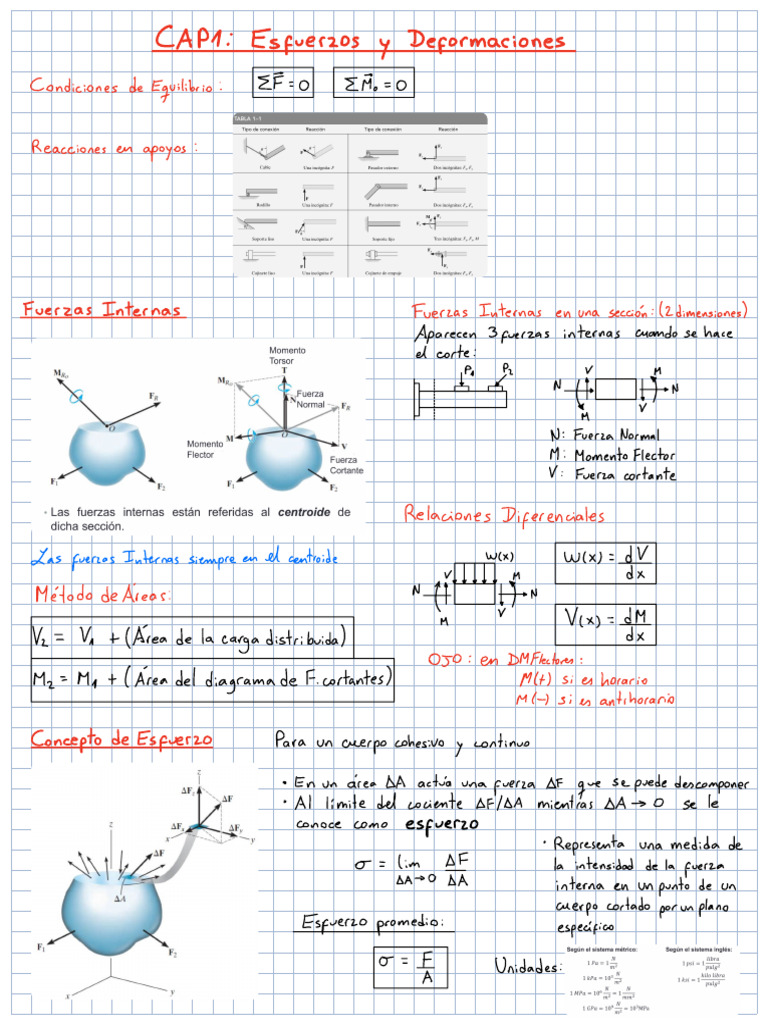 CAP1: Esfuerzos y Deformaciones
Condiciones de Equilibrio: ΣF⃗ = 0 ΣM⃗₀ = 0
Reacciones en apoyos:
TABLA 1-1
Tipo de conexión Reacción Tipo de conexión Reacción
Cable Una incógnita: F Pasador externo Dos incógnitas: Fx, Fy
Rodillo Una incógnita: F Pasador interno Dos incógnitas: Fx, Fy
Soporte liso Una incógnita: F Soporte fijo Tres incógnitas: Fx, Fy, M
Cojinete liso Una incógnita: F Cojinete de empuje Dos incógnitas: Fx, Fy
Fuerzas Internas
Momento
Torsor
T
M_Ro
F_R
O
F1
F2
M_Ro
N
Fuerza
Normal
F_R
M
O
V
Momento
Flector
Fuerza
Cortante
F1
F2
• Las fuerzas internas están referidas al centroide de
dicha sección.
Las fuerzas Internas siempre en el centroide
Método de Áreas:
V₂ = V₁ + (Área de la carga distribuida)
M₂ = M₁ + (Área del diagrama de F. cortantes)
Fuerzas Internas en una sección: (2 dimensiones)
Aparecen 3 fuerzas internas cuando se hace
el corte:
P₁ P₂
N V M N
M V
N: Fuerza Normal
M: Momento Flector
V: Fuerza cortante
Relaciones Diferenciales
W(x)
N V M N
M V
W(x) = dV/dx
V(x) = dM/dx
OJO: en DMFlectores:
M(+) si es horario
M(-) si es antihorario
Concepto de Esfuerzo
Para un cuerpo cohesivo y continuo
• En un área ΔA actúa una fuerza ΔF que se puede descomponer
• Al límite del cociente ΔF/ΔA mientras ΔA → 0 se le
conoce como esfuerzo
σ = lim ΔF/ΔA
ΔA → 0
• Representa una medida de
la intensidad de la fuerza
interna en un punto de un
cuerpo cortado por un plano
específico
Esfuerzo promedio:
σ = F/A
z
ΔFz
ΔF
ΔFx
ΔFy
x
y
z
ΔF
ΔA
F1
F2
x
y
Unidades:
Según el sistema métrico:
1 Pa = 1 N/m²
1 kPa = 10³ N/m²
1 MPa = 10⁶ N/m² = 1 N/mm²
1 GPa = 10⁹ N/m² = 10³MPa
Según el sistema inglés:
1 psi = 1 libra/pulg²
1 ksi = 1 kilo libra/pulg²